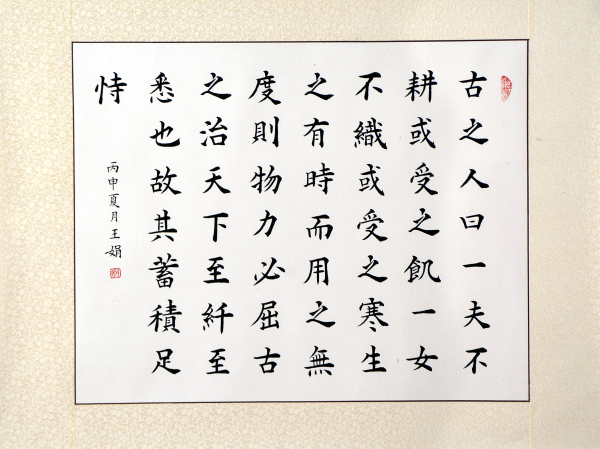 古之人曰一夫不
耕或受之飢一女
不織或受之寒生
之有時而用之無
度則物力必屈古
之治天下至纤至
悉也故其蓄積足
恃
丙申夏月王娟